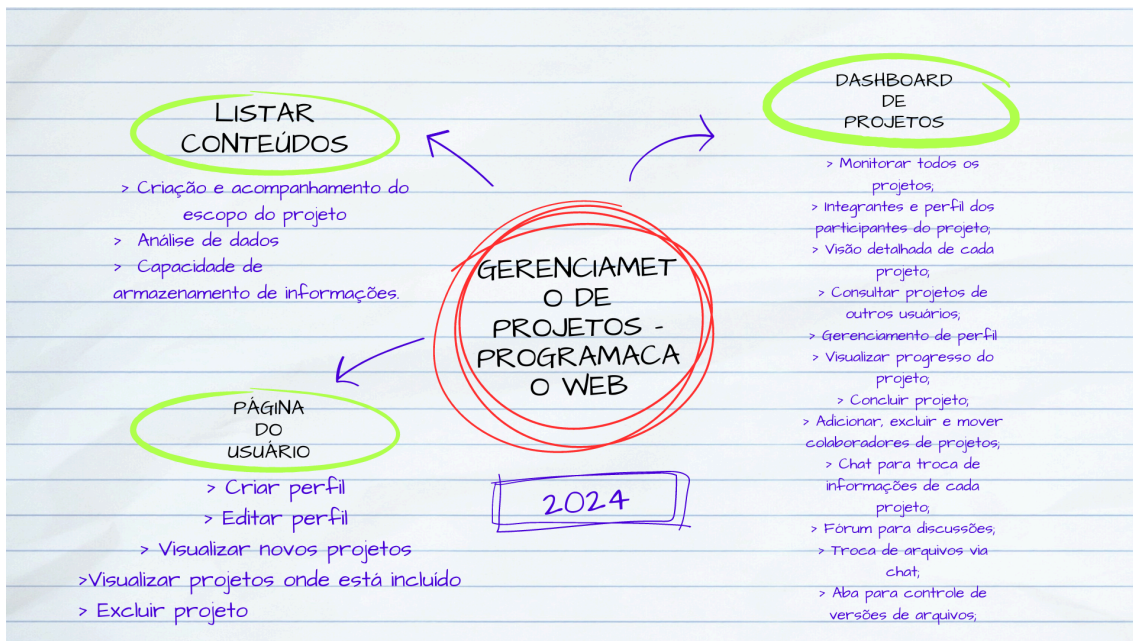 LISTAR
CONTEÚDOS
> Criação e acompanhamento do
escopo do projeto
> Análise de dados
> Capacidade de
armazenamento de informações.
GERENCIAMET
O DE
PROJETOS -
PROGRAMACA
O WEB
2024
PÁGINA
DO
USUÁRIO
> Criar perfil
> Editar perfil
> Visualizar novos projetos
>Visualizar projetos onde está incluído
> Excluir projeto
DASHBOARD
DE
PROJETOS
> Monitorar todos os
projetos;
> Integrantes e perfil dos
participantes do projeto;
> Visão detalhada de cada
projeto;
> Consultar projetos de
outros usuários;
> Gerenciamento de perfil
> Visualizar progresso do
projeto;
> Concluir projeto;
> Adicionar, excluir e mover
colaboradores de projetos;
> Chat para troca de
informações de cada
projeto;
> Fórum para discussões;
> Troca de arquivos via
chat;
> Aba para controle de
versões de arquivos;